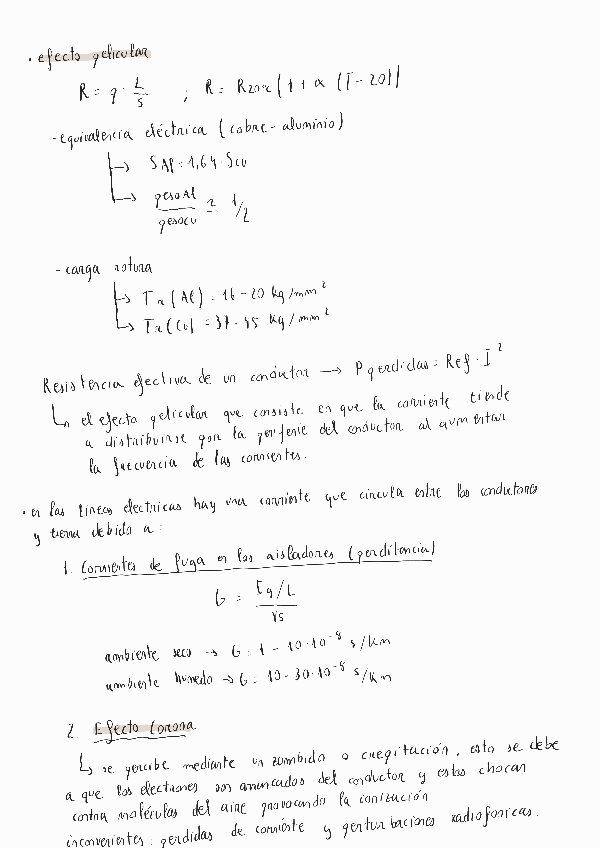 • efecto pelicular
R = ρ · L/S ; R = R20ºC (1 + α (T - 20))
- equivalencia eléctrica (cobre - aluminio)
↳ SAl = 1,64 · Scu
↳ peso Al / peso cu ≈ 1/2
- carga rotura
↳ Tr (Al) = 16 - 20 kg/mm²
↳ Tr (Cu) = 37 - 45 kg/mm²
Resistencia efectiva de un conductor → P perdidas = Ref · I²
↳ el efecto pelicular que consiste en que la corriente tiende
a distribuirse por la periferie del conductor al aumentar
la frecuencia de las corrientes.
• en las lineas electricas hay una corriente que circula entre los conductores
y tierra debido a:
1. Corrientes de fuga en los aisladores (perditancia)
G = Ig/L / Vs
ambiente seco → G = 1 - 10·10⁻⁸ s/Km
ambiente humedo → G = 10 - 30·10⁻⁸ s/Km
2. Efecto Corona
↳ se percibe mediante un zumbido o crepitación, esto se debe
a que los electrones son arrancados del conductor y estos chocan
contra moléculas del aire provocando la ionización
inconvenientes: perdidas de corriente y perturbaciones radiofonicas.